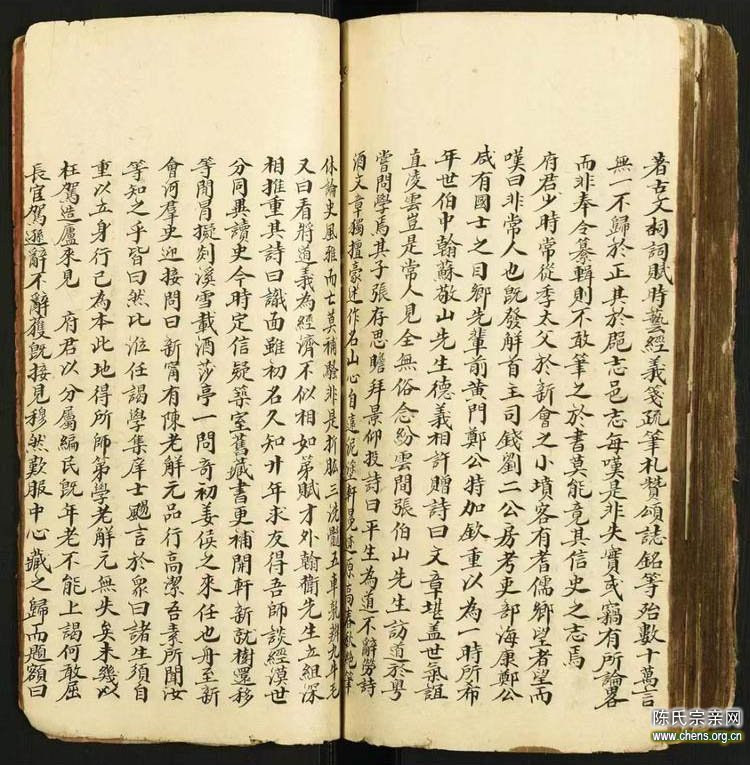 著古文詞詞賦時藝經義箋疏筆札贊頌誌銘等殆數十萬言
無一不歸於正其於郡志邑志每嘆是非失實或竊有所論畧
而非奉令纂輯則不敢筆之於書莫能竟其信史之志焉
府君少時常從季太父於新會之小墳客有耆儒鄉望者望而
嘆曰非常人也既發解首主司錢劉二公房考吏部海康鄭公
咸有國士之目鄉先輩前黃門鄭公特加欽重以為一時所布
年世伯中翰蘇敬山先生德義相許贈詩曰文章堪盖世氣誼
直凌雲豈是常人見全無俗念紛雲間張伯山先生訪道於粵
嘗問學焉其子張存思瞻拜景仰投詩曰平生為道不辭勞詩
酒文章獨擅豪述作名山心自遠泥塗軒冕迹原高春秋絶筆
休論史風雅而士莫稱騷非是折肱三洗髓五車競辨九牛毛
又曰看將道義為經濟不似相如第賦才外翰衛先生立組深
相推重其詩曰識面雖初名久知廿年求友得吾師談經漢世
分同異讀史今時定信疑築室舊藏書更補開軒新就樹還移
等閒冒擬剡溪雪載酒莎亭一問奇初姜侯之來任也舟至新
會河羣史迎接問曰新甯有陳老解元品行高潔吾素所聞汝
等知之乎皆曰然比涖任謁學集庠士颺言於衆曰諸生須自
重以立身行己為本此地得所師第學老解元無失矣未幾以
枉駕造廬來見 府君以分屬編民既年老不能上謁何敢屈
長官駕遜辭不辭獲既接見穆然歎服中心藏之歸而題額曰
陈氏宗亲网
www.chens.org.cn